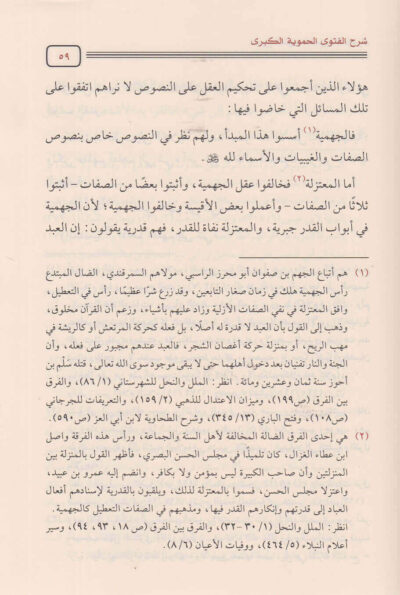 شرح الفتوى الحموية الكبرى
٥٩
هؤلاء الذين أجمعوا على تحكيم العقل على النصوص لا نراهم اتفقوا على
تلك المسائل التي خاضوا فيها:
فالجهمية(١) أسسوا هذا المبدأ، ولهم نظر في النصوص خاص بنصوص
الصفات والغيبيات والأسماء لله ﷻ.
أما المعتزلة(٢) فخالفوا عقل الجهمية، وأثبتوا بعضًا من الصفات - أثبتوا
ثلاثًا من الصفات - وأعملوا بعض الأقيسة وخالفوا الجهمية؛ لأن الجهمية
في أبواب القدر جبرية، والمعتزلة نفاة للقدر، فهم قدرية يقولون: إن العبد
(١) هم أتباع الجهم بن صفوان أبو محرز الراسبي، مولاهم السمرقندي، الضال المبتدع
رأس الجهمية هلك في زمان صغار التابعين، وقد زرع شرًا عظيمًا، رأس في التعطيل،
وافق المعتزلة في نفي الصفات الأزلية وزاد عليهم بأشياء، وزعم أن القرآن مخلوق،
وذهب إلى القول بأن العبد لا قدرة له أصلًا، بل فعله كحركة المرتعش أو كالريشة في
مهب الريح، أو بمنزلة حركة أغصان الشجر، فالعبد عندهم مجبور على فعله، وأن
الجنة والنار تفنيان بعد دخول أهلهما حتى لا يبقى موجود سوى الله تعالى، قتله سَلْم بن
أحوز سنة ثمان وعشرين ومائة. انظر: الملل والنحل للشهرستاني (١/ ٨٦)، والفرق
بين الفرق (ص١٩٩)، وميزان الاعتدال للذهبي (٢/ ١٥٩)، والتعريفات للجرجاني
(ص١٠٨)، وفتح الباري (١٣/ ٣٤٥)، وشرح الطحاوية لابن أبي العز (ص٥٩٠).
(٢) هي إحدى الفرق الضالة المخالفة لأهل السنة والجماعة، ورأس هذه الفرقة واصل
ابن عطاء الغزال، كان تلميذًا في مجلس الحسن البصري، فأظهر القول بالمنزلة بين
المنزلتين وأن صاحب الكبيرة ليس بمؤمن ولا بكافر، وانضم إليه عمرو بن عبيد،
واعتزلا مجلس الحسن، فسموا بالمعتزلة لذلك، ويلقبون بالقدرية لإسنادهم أفعال
العباد إلى قدرتهم وإنكارهم القدر فيها، ومذهبهم في الصفات التعطيل كالجهمية.
انظر: الملل والنحل (١/ ٣٠ -٣٢)، والفرق بين الفرق (ص١٨، ٩٣، ٩٤)، وسير
أعلام النبلاء (٥/ ٤٦٤)، ووفيات الأعيان (٦/ ٨).